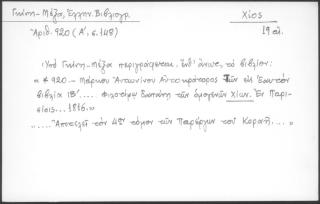 Γκίνη - Μέξα, Ἑλλην. Βιβλιογρ.
Χίος
Ἀριθ. 920 (Α', σ. 148)
19 αἰ.
Ὑπὸ Γκίνη - Μέξα περιγράφεται, ἔνθ' ἄνωτ., τὸ βιβλίον:
« * 920. - Μάρκου Ἀντωνίνου Αὐτοκράτορος τῶν εἰς Ἑαυτὸν
βιβλία ΙΒ' .... Φιλοτίμῳ δαπάνῃ τῶν ὁμογενῶν Χίων. Ἐν Παρι-
σίοις... 1816. »
« .... Ἀποτελεῖ τὸν 4ον τόμον τῶν Παρέργων τοῦ Κοραῆ.... »